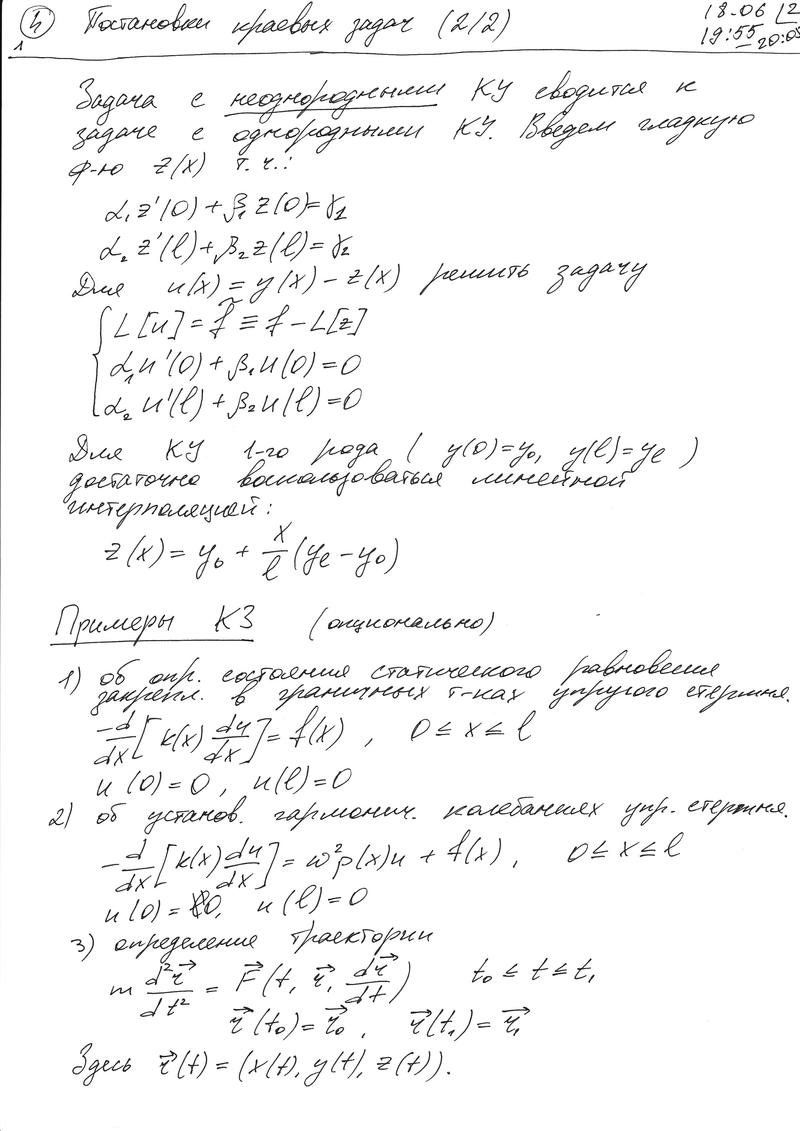 4
1
Постановки краевых задач (2/2)
18.06 12
19:55 20:05
Задача с неоднородными КУ сводится к
задаче с однородными КУ. Введем гладкую
ф-ю z(x) т.ч.:
α₁z'(0) + β₁z(0) = γ₁
α₂z'(l) + β₂z(l) = γ₂
Для u(x) = y(x) − z(x) решить задачу
L[u] = f̃ ≡ f − L[z]
α₁u'(0) + β₁u(0) = 0
α₂u'(l) + β₂u(l) = 0
Для КУ 1-го рода ( y(0)=y₀, y(l)=yₑ )
достаточно воспользоваться линейной
интерполяцией:
z(x) = y₀ + x/l (yₑ − y₀)
Примеры КЗ (опционально)
1) об опр. состояния статического равновесия
закрепл. в граничных т-ках упругого стержня.
−d/dx [k(x) du/dx] = f(x) , 0 ≤ x ≤ l
u(0) = 0 , u(l) = 0
2) об установ. гармонич. колебаниях упр. стержня.
−d/dx [k(x) du/dx] = ω²ρ(x)u + f(x) , 0 ≤ x ≤ l
u(0) = 0, u(l) = 0
3) определение траектории
m d²r⃗/dt² = F⃗(t, r⃗, dr⃗/dt) t₀ ≤ t ≤ t₁
r⃗(t₀) = r⃗₀ , r⃗(t₁) = r⃗₁
Здесь r⃗(t) = (x(t), y(t), z(t)).